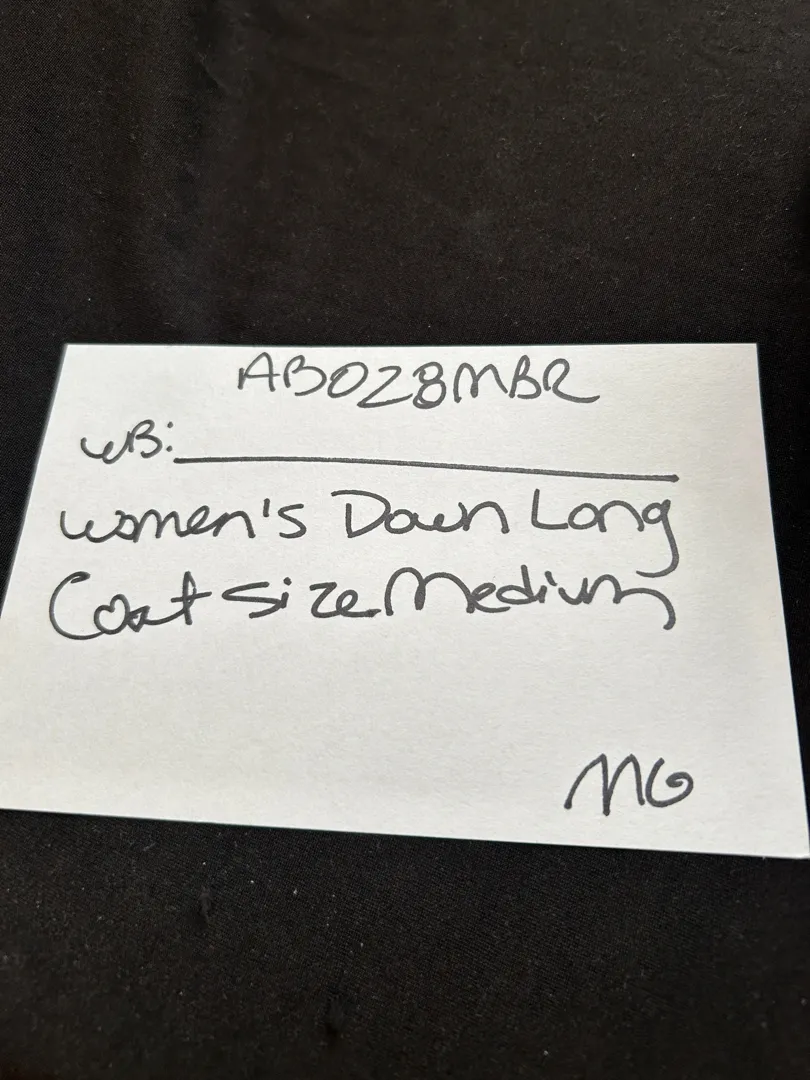 AB028MBR
WB:
Women's Down Long
Coat Size Medium
MG